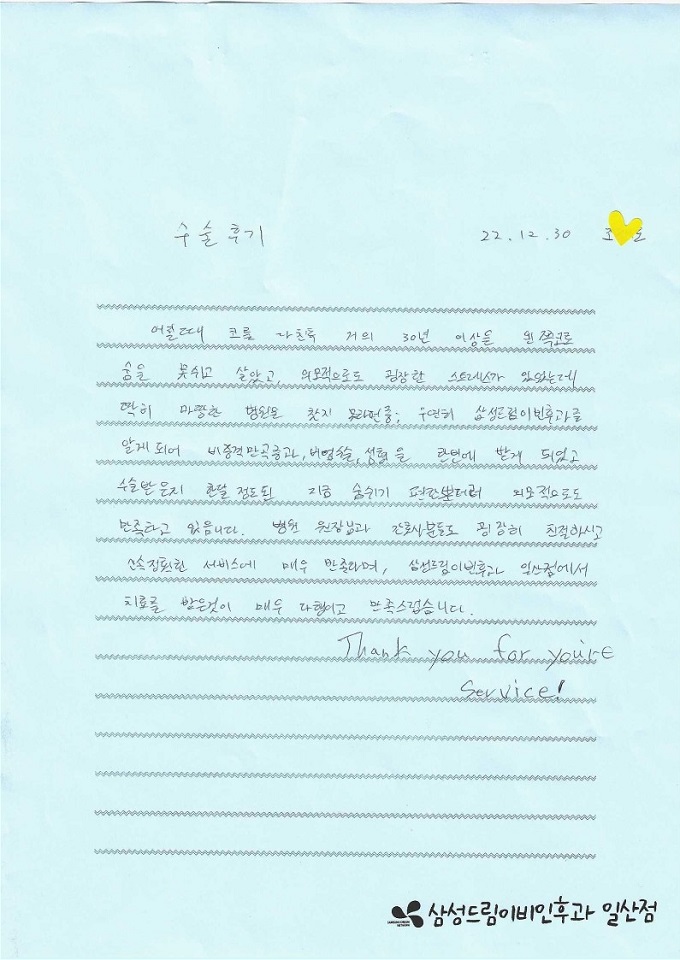 수술후기 22.12.30 조 도
어릴때 코를 다친후 거의 30년 이상을 왼쪽코로
숨을 못쉬고 살았고, 외모적으로도 굉장한 스트레스가 있었는데
딱히 마땅한 병원을 찾지 못하던중; 우연히 삼성드림이빈후과를
알게되어 비중격만곡증과, 비염수술, 성형을 한번에 받게 되었고
수술받은지 한달정도된 지금 숨쉬기 편한부터해 외모적으로도
만족하고 있습니다. 병원 원장님과 간호사분들도 굉장히 친절하시고
신속정확한 서비스에 매우 만족하며, 삼성드림이빈후과 일산점에서
치료를 받은것이 매우 다행이고 만족스럽습니다.
Thank you for you're
Service!
삼성드림이비인후과 일산점